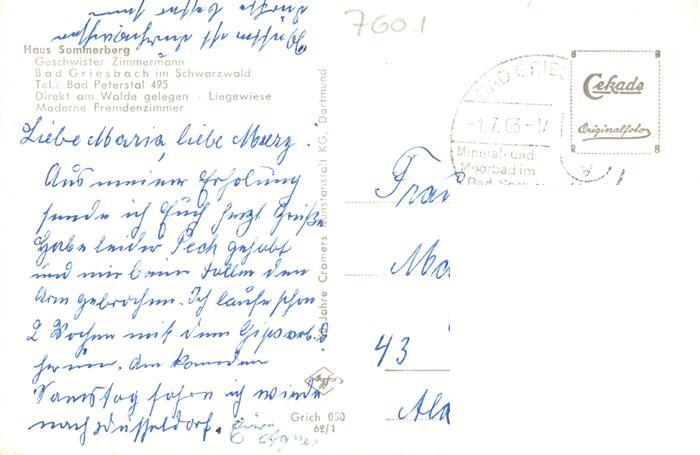 7601
Haus Sommerberg
Geschwister Zimmermann
Bad Griesbach im Schwarzwald
Tel.: Bad Peterstal 495
Direkt am Walde gelegen - Liegewiese
Moderne Fremdenzimmer
Liebe Maria, liebe
Aus meiner Erholung
sende ich Euch herzl. Grüße
Habe leider Pech gehabt
und mir beim Fallen den
Arm gebrochen. Ich laufe schon
2 Wochen mit dem Gipsverb.
herum. Am kommenden
Samstag fahre ich wieder
nach Düsseldorf.
Agnes
Jahre Cramers Kunstanstalt KG, Dortmund
Grich 050
62/1
BAD GRIES
-1.7.63-1
Mineral- und
Moorbad im
Cekade
Originalfoto
Frau
Ma
43